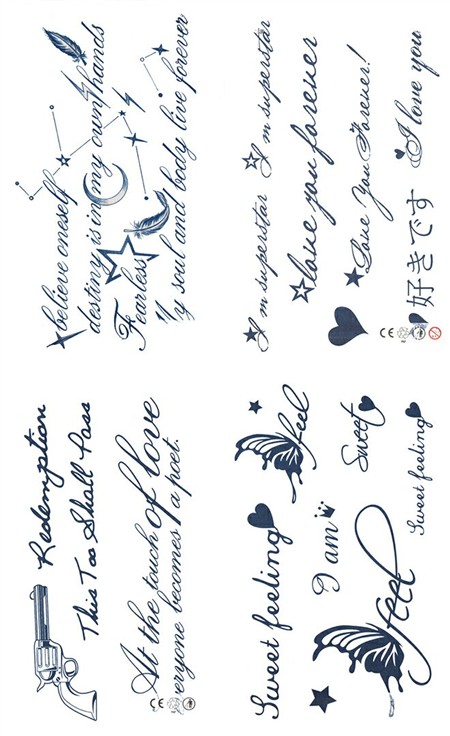 believe oneself
destiny is in my own hands
Fearless
y soul and body live forever
I m superstar
I m superstar
love you forever
Love You Forever!
好きです
I love you
Redemption
This Too Shall Pass
At the touch of love
veryone becomes a poet.
Sweet feeling
feel
I am
Sweet
feel
Sweet feeling